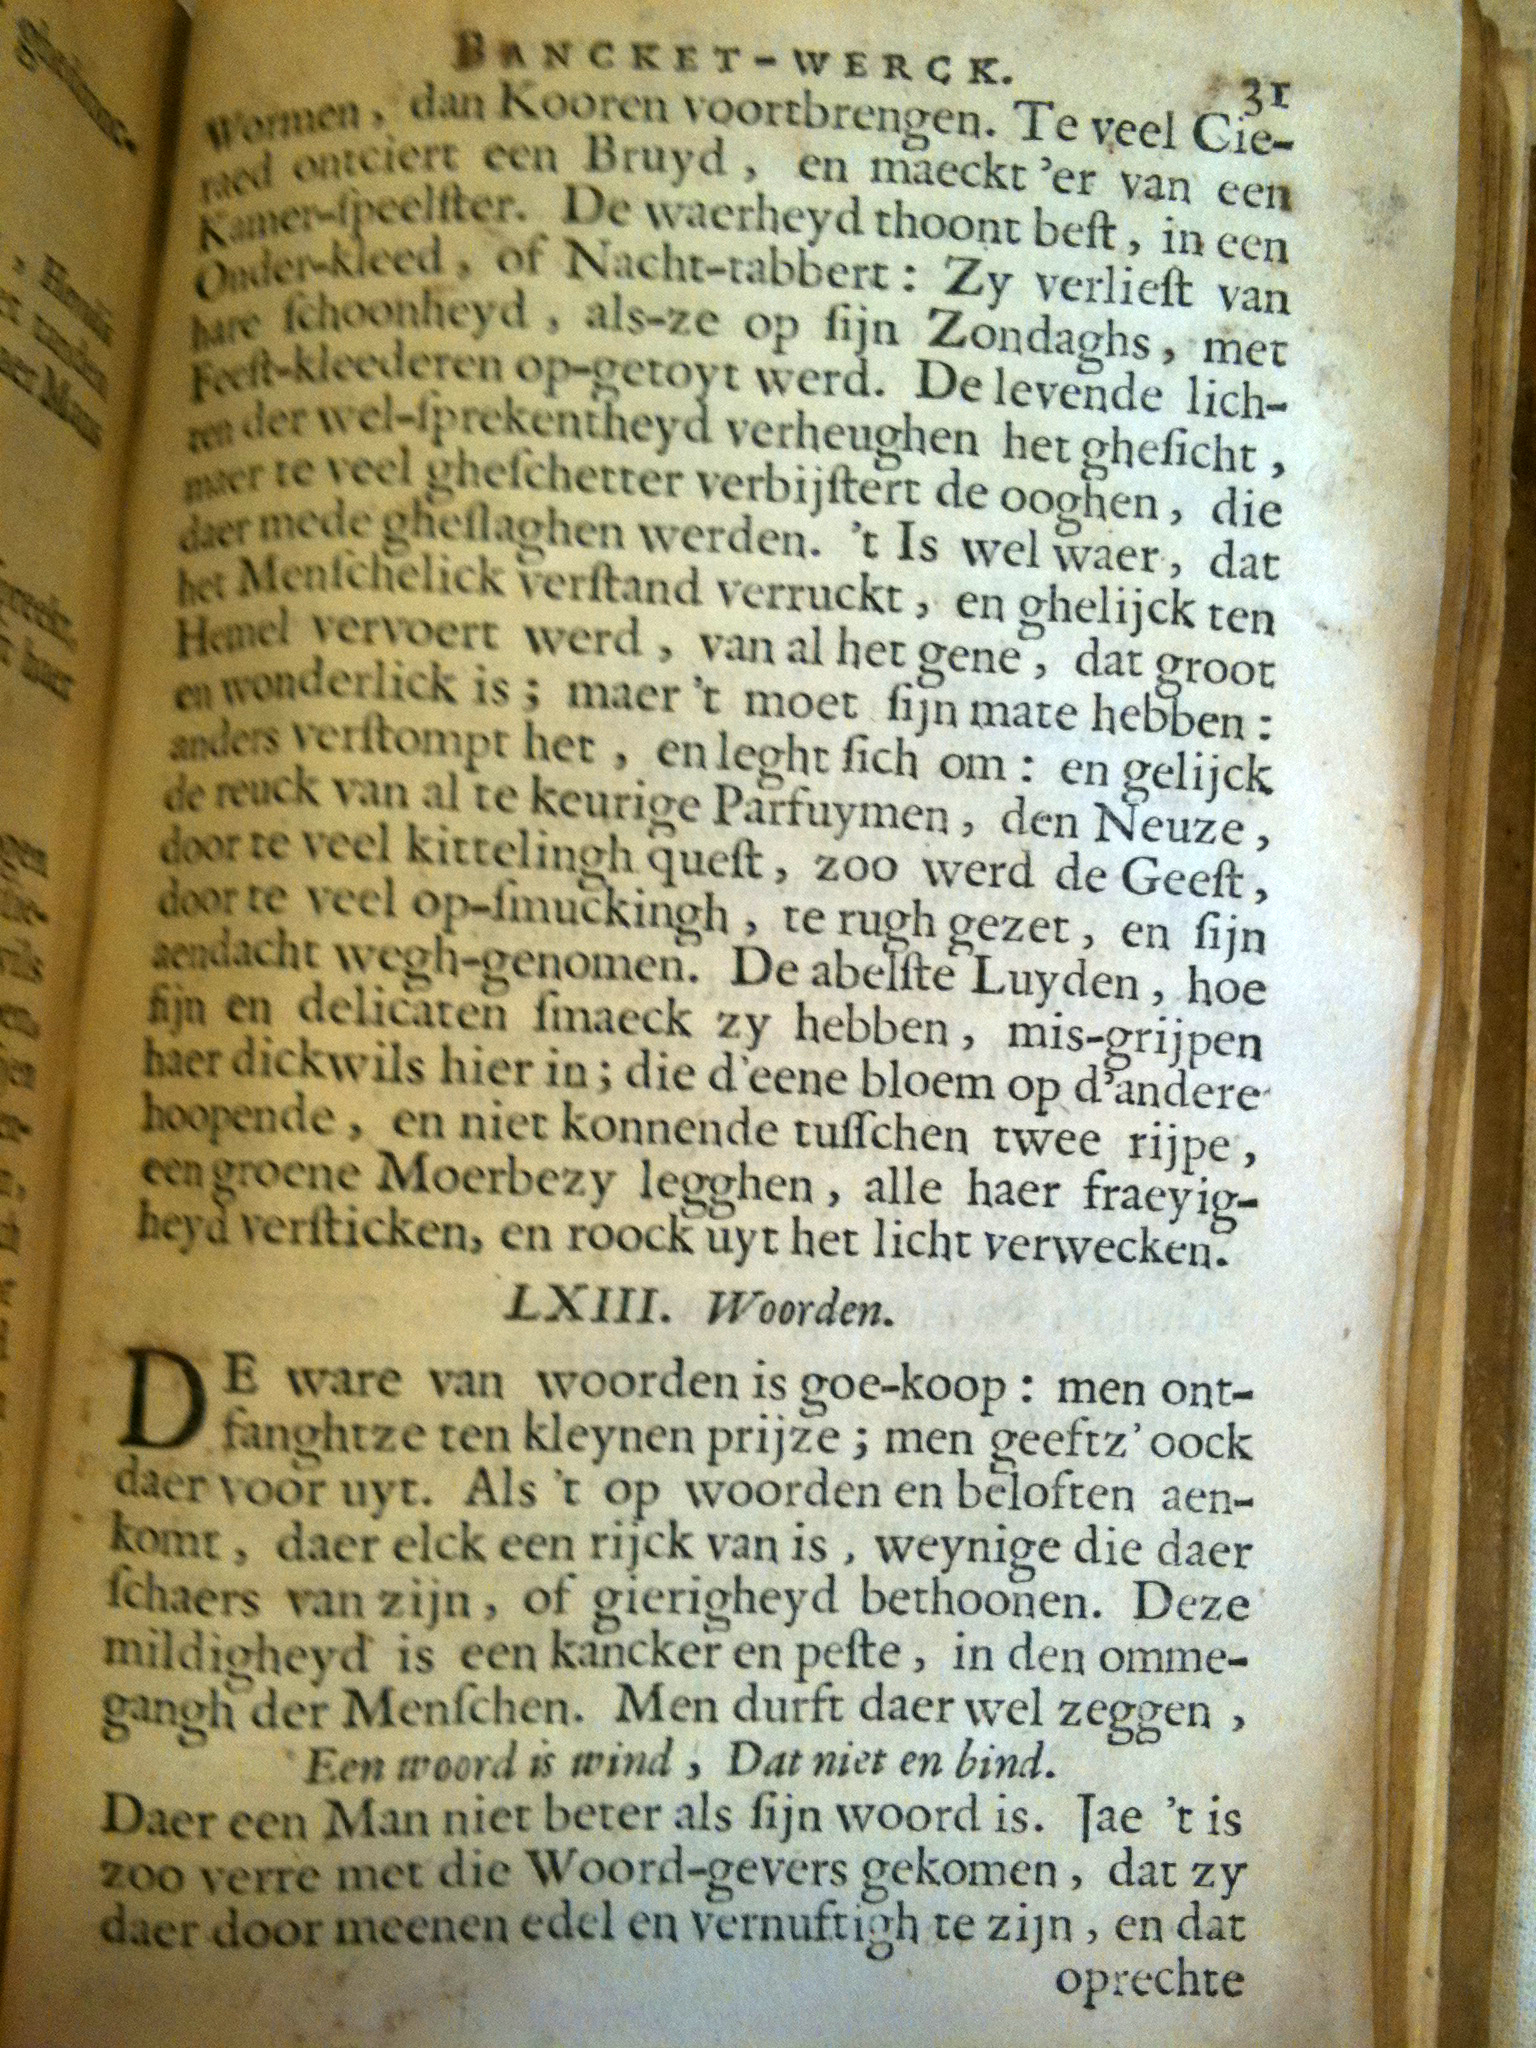 BANCKET-WERCK. 31
Wormen, dan Kooren voortbrengen. Te veel Cie-
raed ontciert een Bruyd, en maeckt 'er van een
Kamer-ſpeelſter. De waerheyd thoont beſt, in een
Onder-kleed, of Nacht-tabbert: Zy verlieſt van
hare ſchoonheyd, als-ze op ſijn Zondaghs, met
Feeſt-kleederen op-getoyt werd. De levende lich-
ten der wel-ſprekentheyd verheughen het gheſicht,
maer te veel gheſchetter verbijſtert de ooghen, die
daer mede gheſlaghen werden. 't Is wel waer, dat
het Menſchelick verſtand verruckt, en ghelijck ten
Hemel vervoert werd, van al het gene, dat groot
en wonderlick is; maer 't moet ſijn mate hebben:
anders verſtompt het, en leght ſich om: en gelijck
de reuck van al te keurige Parfuymen, den Neuze,
door te veel kittelingh queſt, zoo werd de Geeſt,
door te veel op-ſmuckingh, te rugh gezet, en ſijn
aendacht wegh-genomen. De abelſte Luyden, hoe
fijn en delicaten ſmaeck zy hebben, mis-grijpen
haer dickwils hier in; die d'eene bloem op d'andere
hoopende, en niet konnende tuſſchen twee rijpe,
een groene Moerbezy legghen, alle haer fraeyig-
heyd verſticken, en roock uyt het licht verwecken.
LXIII. Woorden.
DE ware van woorden is goe-koop: men ont-
fanghtze ten kleynen prijze; men geeftz' oock
daer voor uyt. Als 't op woorden en beloften aen-
komt, daer elck een rijck van is, weynige die daer
ſchaers van zijn, of gierigheyd bethoonen. Deze
mildigheyd is een kancker en peſte, in den omme-
gangh der Menſchen. Men durft daer wel zeggen,
Een woord is wind, Dat niet en bind.
Daer een Man niet beter als ſijn woord is. Jae 't is
zoo verre met die Woord-gevers gekomen, dat zy
daer door meenen edel en vernuftigh te zijn, en dat
oprechte